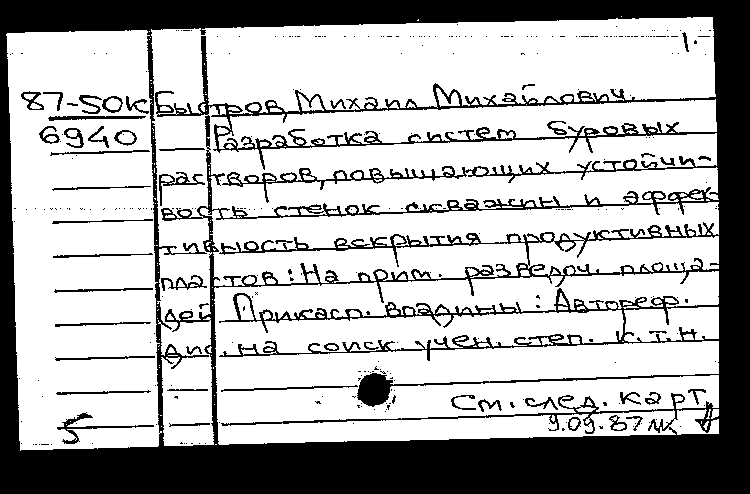 1.
87-50к Быстров, Михаил Михайлович.
6940 Разработка систем буровых
растворов, повышающих устойчи-
вость стенок скважин и эффек-
тивность вскрытия продуктивных
пластов: На прим. разведоч. площа-
дей Прикасп. впадины: Автореф.
дис. на соиск. учен. степ. к.т.н.
См. след. карт.
5 9.09.87